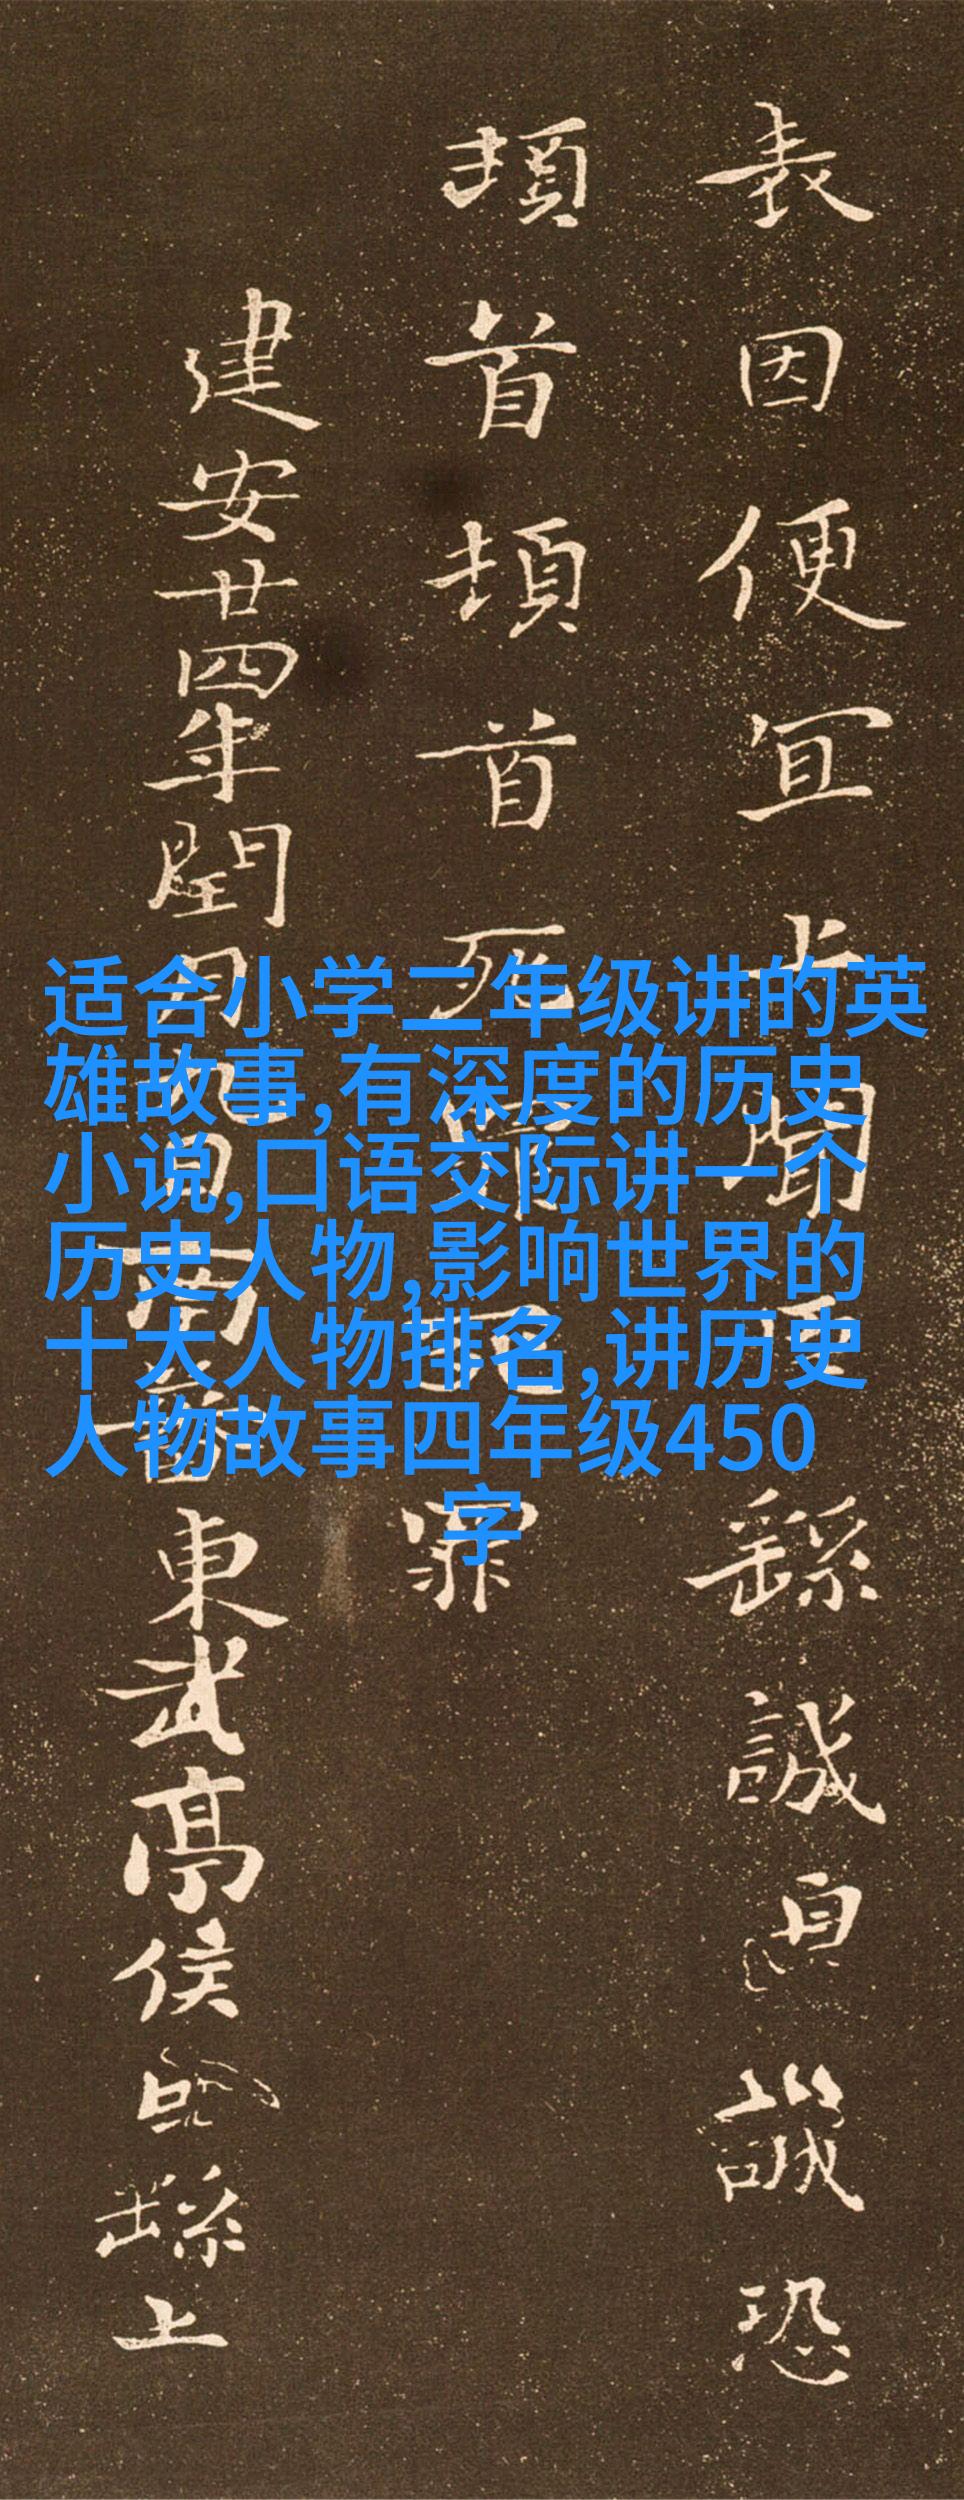 适合小学二年级讲的英
雄故事,有深度的历史
小说,口语交际讲一个
历史人物,影响世界的
十大人物排名,讲历史
人物故事四年级450
字
表因便冝上聞臣繇誠誠恐
頓首頓首死罪死罪
建安廿四年閏月九日南蕃東武亭侯繇上